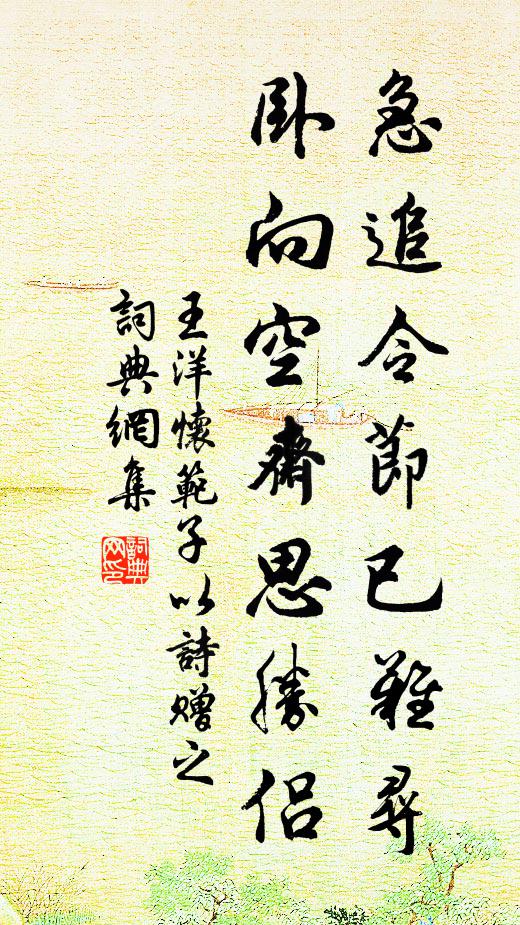 急追令節已難尋
臥向空齋思勝侶
王洋懷範子以詩贈之
詞典網集
詞典网印